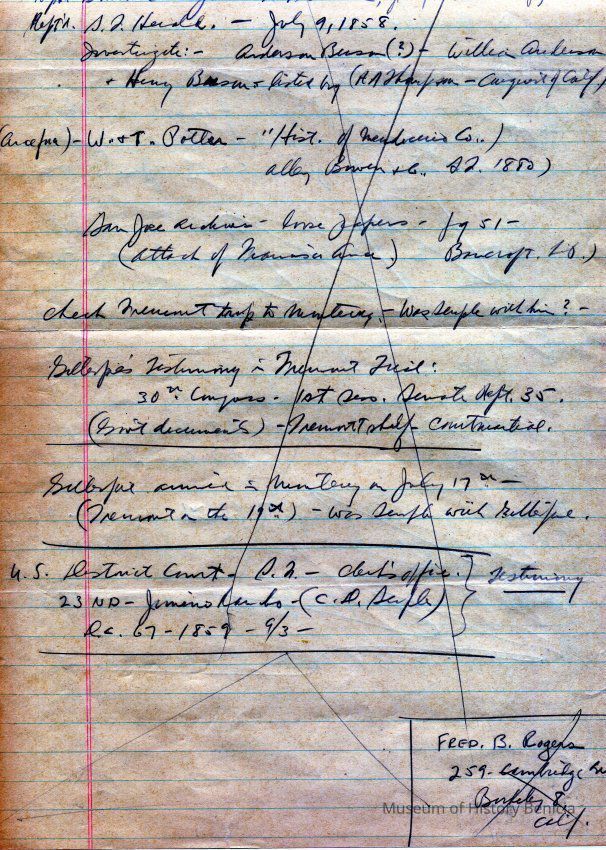 Rept'd. S.F. Herald. — July 9, 1858.
Investigate:- Anderson Beeson (?) - William Anderson
+ Henry Beeson + listed by (R.A. Thompson - Conquest of Calif)
- W. + T. Potter - "Hist. of Mendocino Co.,)
Alley Bowen + Co., S.F. 1880)
San Jose Archives - loose papers - pg 51 -
(attack of Francisco Arce) Bancroft. Lib.)
check Fremont trip to Monterey. - Was Semple with him? -
Gillespie's Testimony in Fremont Trial:
30th Congress - 1st Sess. Senate Rept. 35.
(Gov't documents) - Fremont shelf - Courtmartial.
Gillespie arrived in Monterey on July 17th -
(Fremont on the 19th) - was Semple with Gillespie.
U.S. District Court - S.F. - clerk's office. } Testimony
23 ND - Jimeno Rancho - (C.D. Semple)
Dec. 67 - 1859 - 9/3 -
FRED. B. Rogers
259 - Cambridge
Berkeley 8
Calif.
Museum of History Benicia